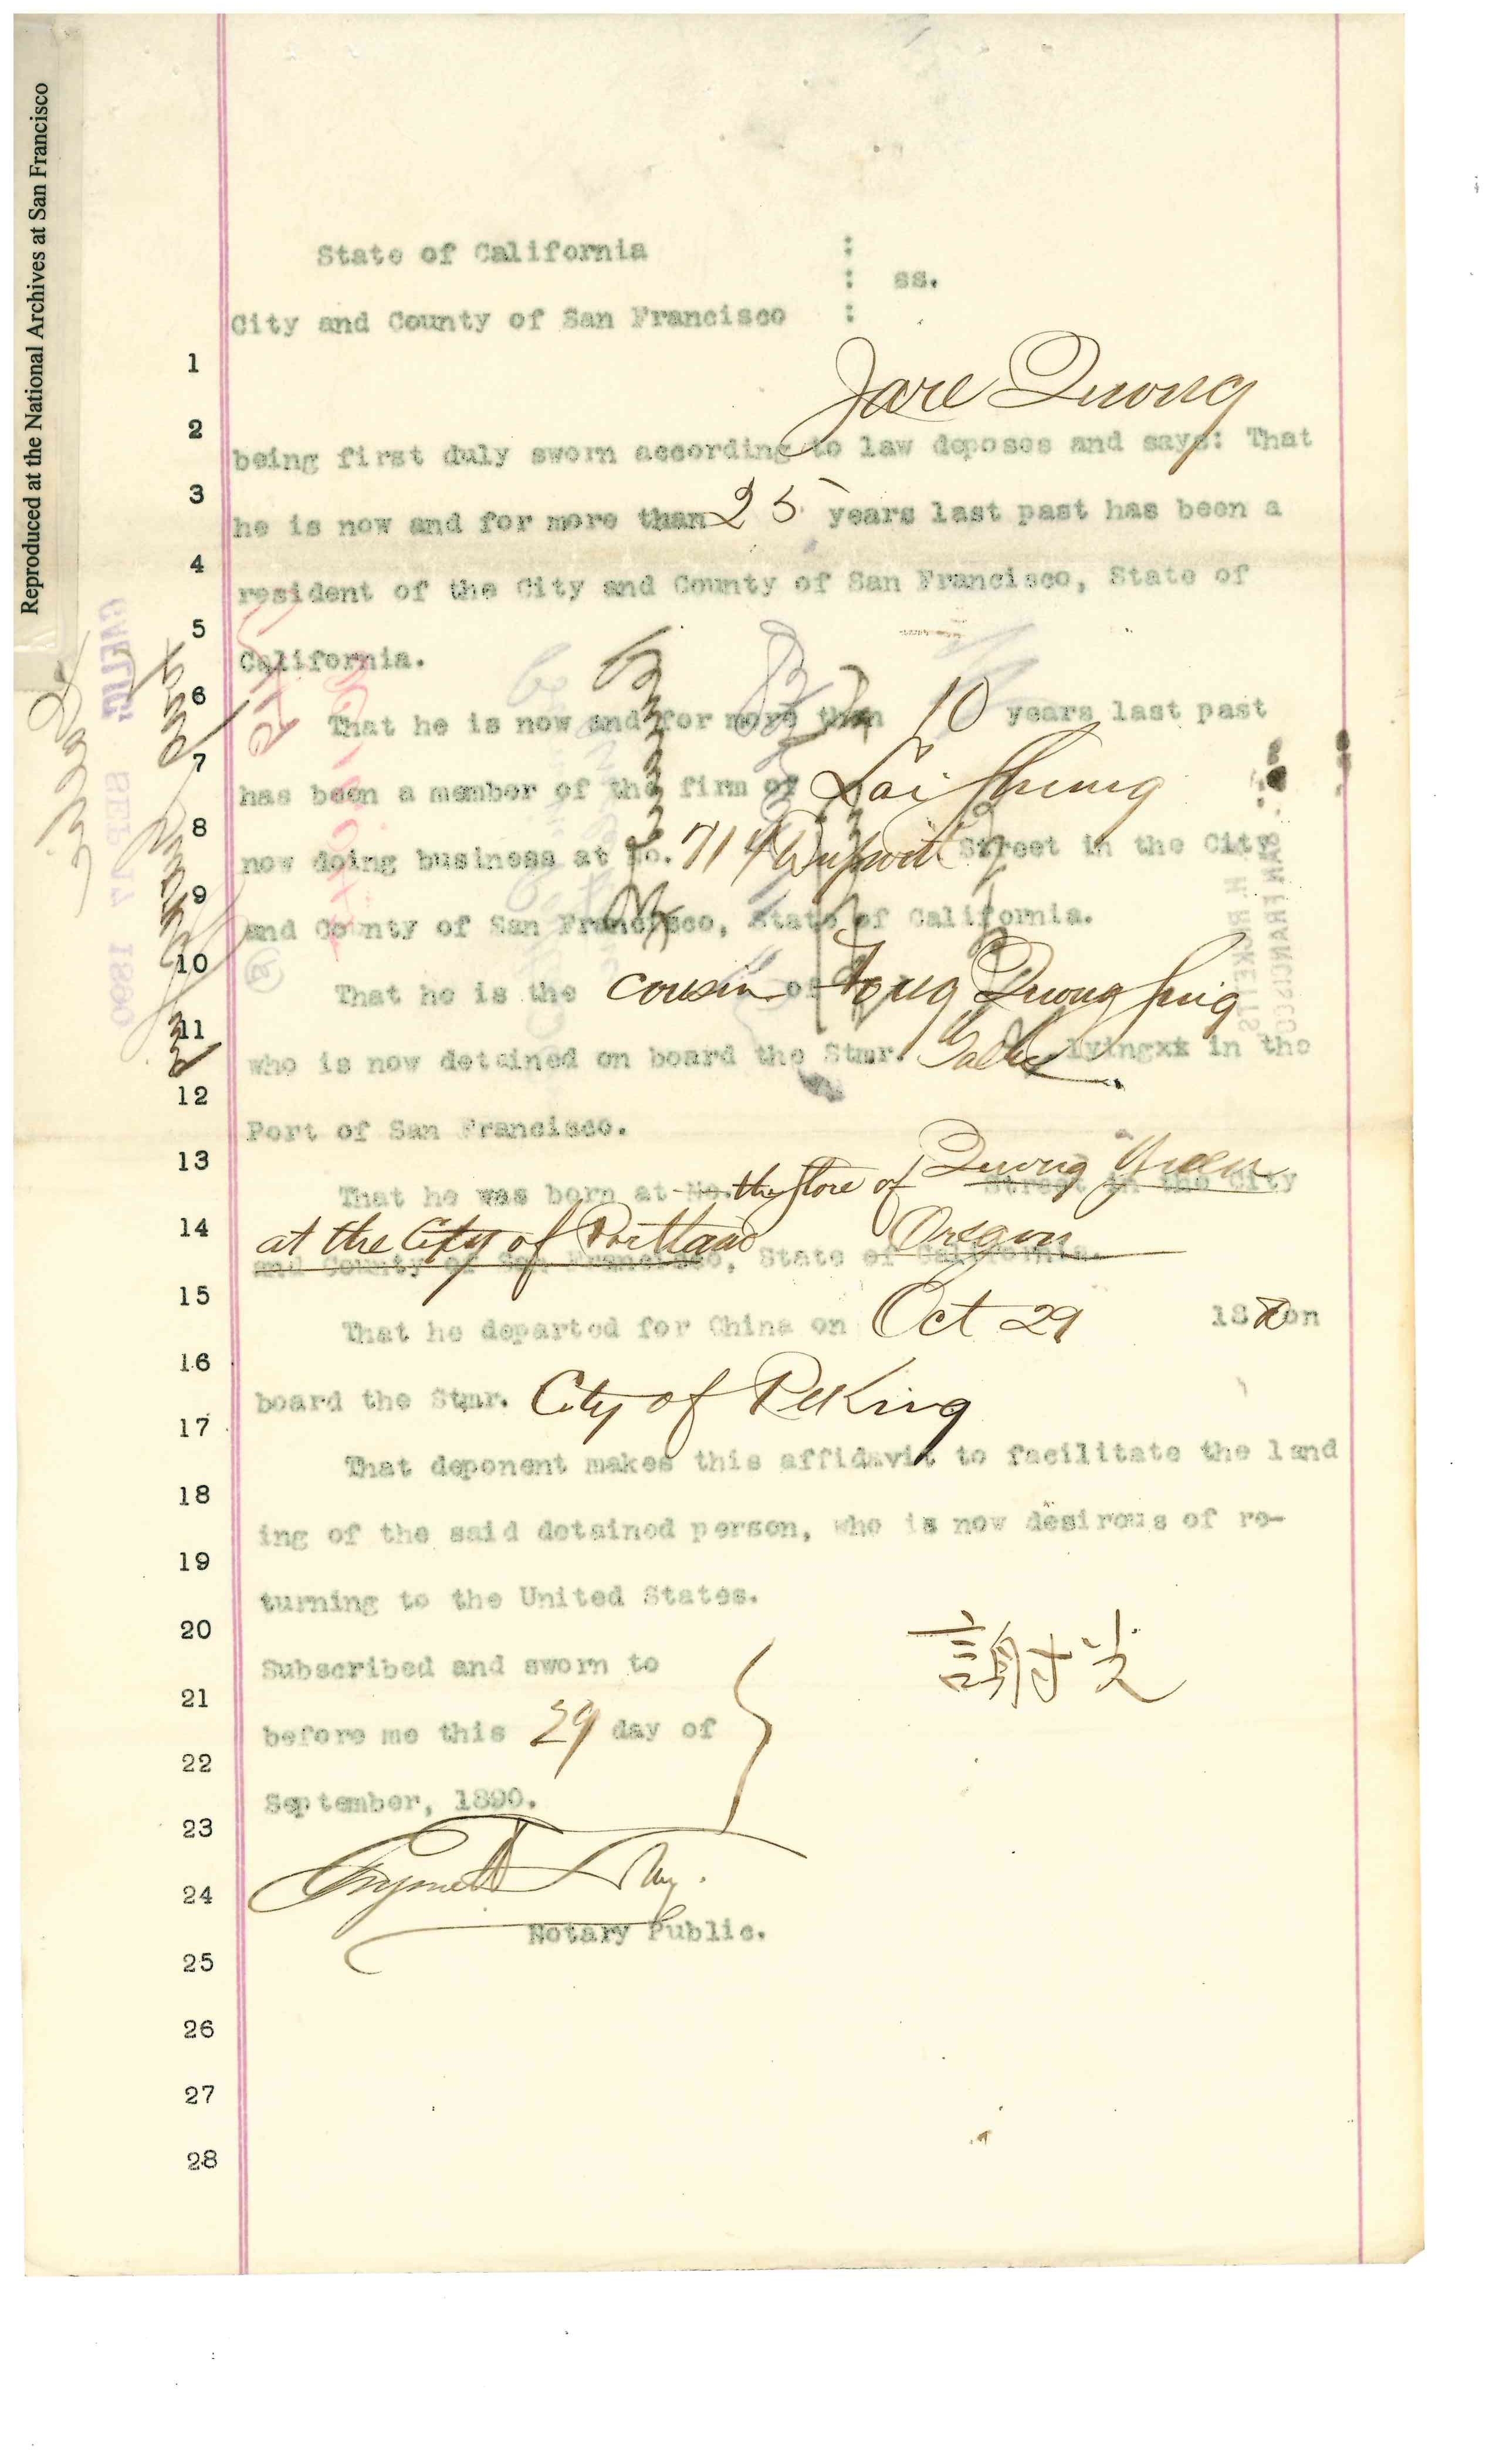 Reproduced at the National Archives at San Francisco
State of California :
: ss.
City and County of San Francisco :
1
Jare Quong
2
being first duly sworn according to law deposes and says: That
3
he is now and for more than 25 years last past has been a
4
resident of the City and County of San Francisco, State of
5
California.
6
That he is now and for more than 10 years last past
7
has been a member of the firm of Lai Shung
8
now doing business at No. 714 Dupont Street in the City
9
and County of San Francisco, State of California.
10
That he is the cousin of Quong
11
who is now detained on board the Stmr. Gaelic lyingxx in the
12
Port of San Francisco.
13
That he was born at No. the store of Quong Street in the City
14
at the City of Portland Oregon
and County of San Francisco, State of California.
15
That he departed for China on Oct 29 18 on
16
board the Stmr. City of Peking
17
That deponent makes this affidavit to facilitate the land
18
ing of the said detained person, who is now desirous of re-
19
turning to the United States.
20
謝光
Subscribed and sworn to
21
before me this 29 day of
22
September, 1890.
23
24
Notary Public.
25
26
27
28
GAELIC
SEP 17 1890
SAN FRANCISCO